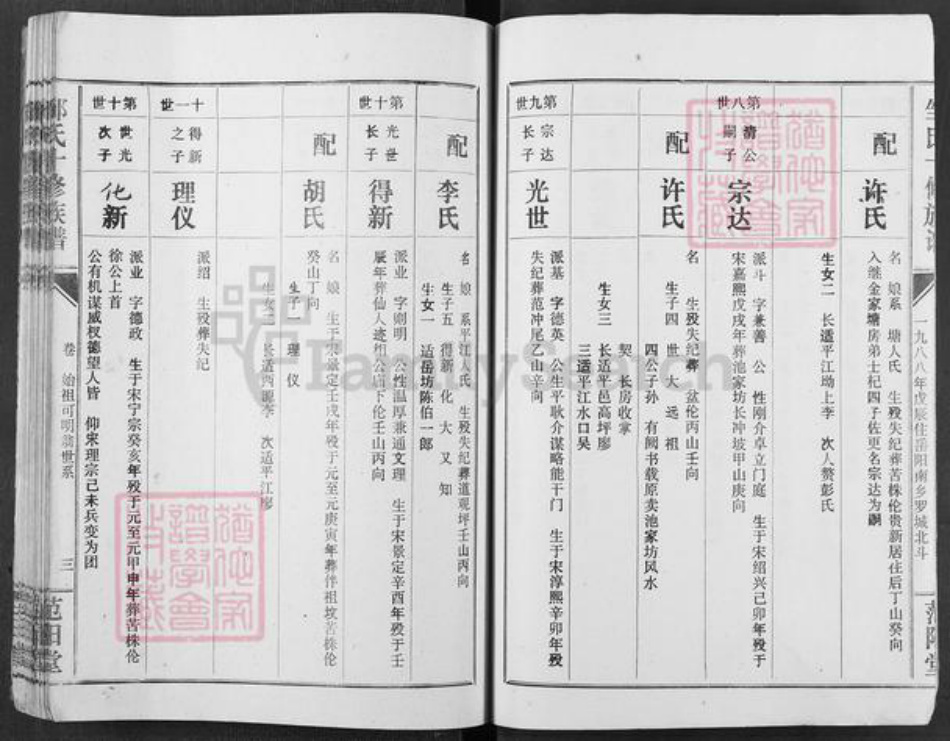 配
许氏
名 娘系 塘人氏 生殁失纪葬苦株伦贵新居住后丁山癸向
入继金家塘房弟士杞四子佐更名宗达为嗣
生女二 长适平江坳上李 次人赘彭氏
第八世
清公嗣子
宗达
派斗 字兼善 公 性刚介卓立门庭 生于宋绍兴己卯年殁于
宋嘉熙戊戌年葬池家坊长冲坡甲山庚向
配
许氏
名 生殁失纪葬 盆伦丙山壬向
生子四 世 大 远 祖
四公子孙 有阙书载原卖池家坊风水
契 长房收掌
生女三 长适平邑高坪廖
三适平江水口吴
第九世
宗达长子
光世
派基 字德英 公生平耿介谋略能干门 生于宋淳熙辛卯年殁
失纪葬范冲尾乙山辛向
一九八八年戊辰住岳阳南乡罗城北斗
范阳堂
配
李氏
名 娘 系平江人氏 生殁失纪葬道观坪壬山丙向
生子五 得新 化 大 又 知
生女一 适岳坊陈伯一郎
第十世
光世长子
得新
派业 字则明 公性温厚兼通文理 生于宋景定辛酉年殁于壬
辰年葬仙人迹相公庙下伦壬山丙向
配
胡氏
名 娘 生于宋景定壬戌年殁于元至元庚寅年葬伴祖坟苦株伦
癸山丁向
生子一 理 仪
生女二 长适西畹李 次适平江廖
十一世
得新之子
理仪
派绍 生殁葬失纪
第十世
世光次子
化新
派业 字德政 生于宋宁宗癸亥年殁于元至元甲申年葬苦株伦
徐公上首
公有机谋威权德望人皆 仰宋理宗己未兵变为团
氏十修族谱
卷 始祖可明翁世系
三
范阳堂